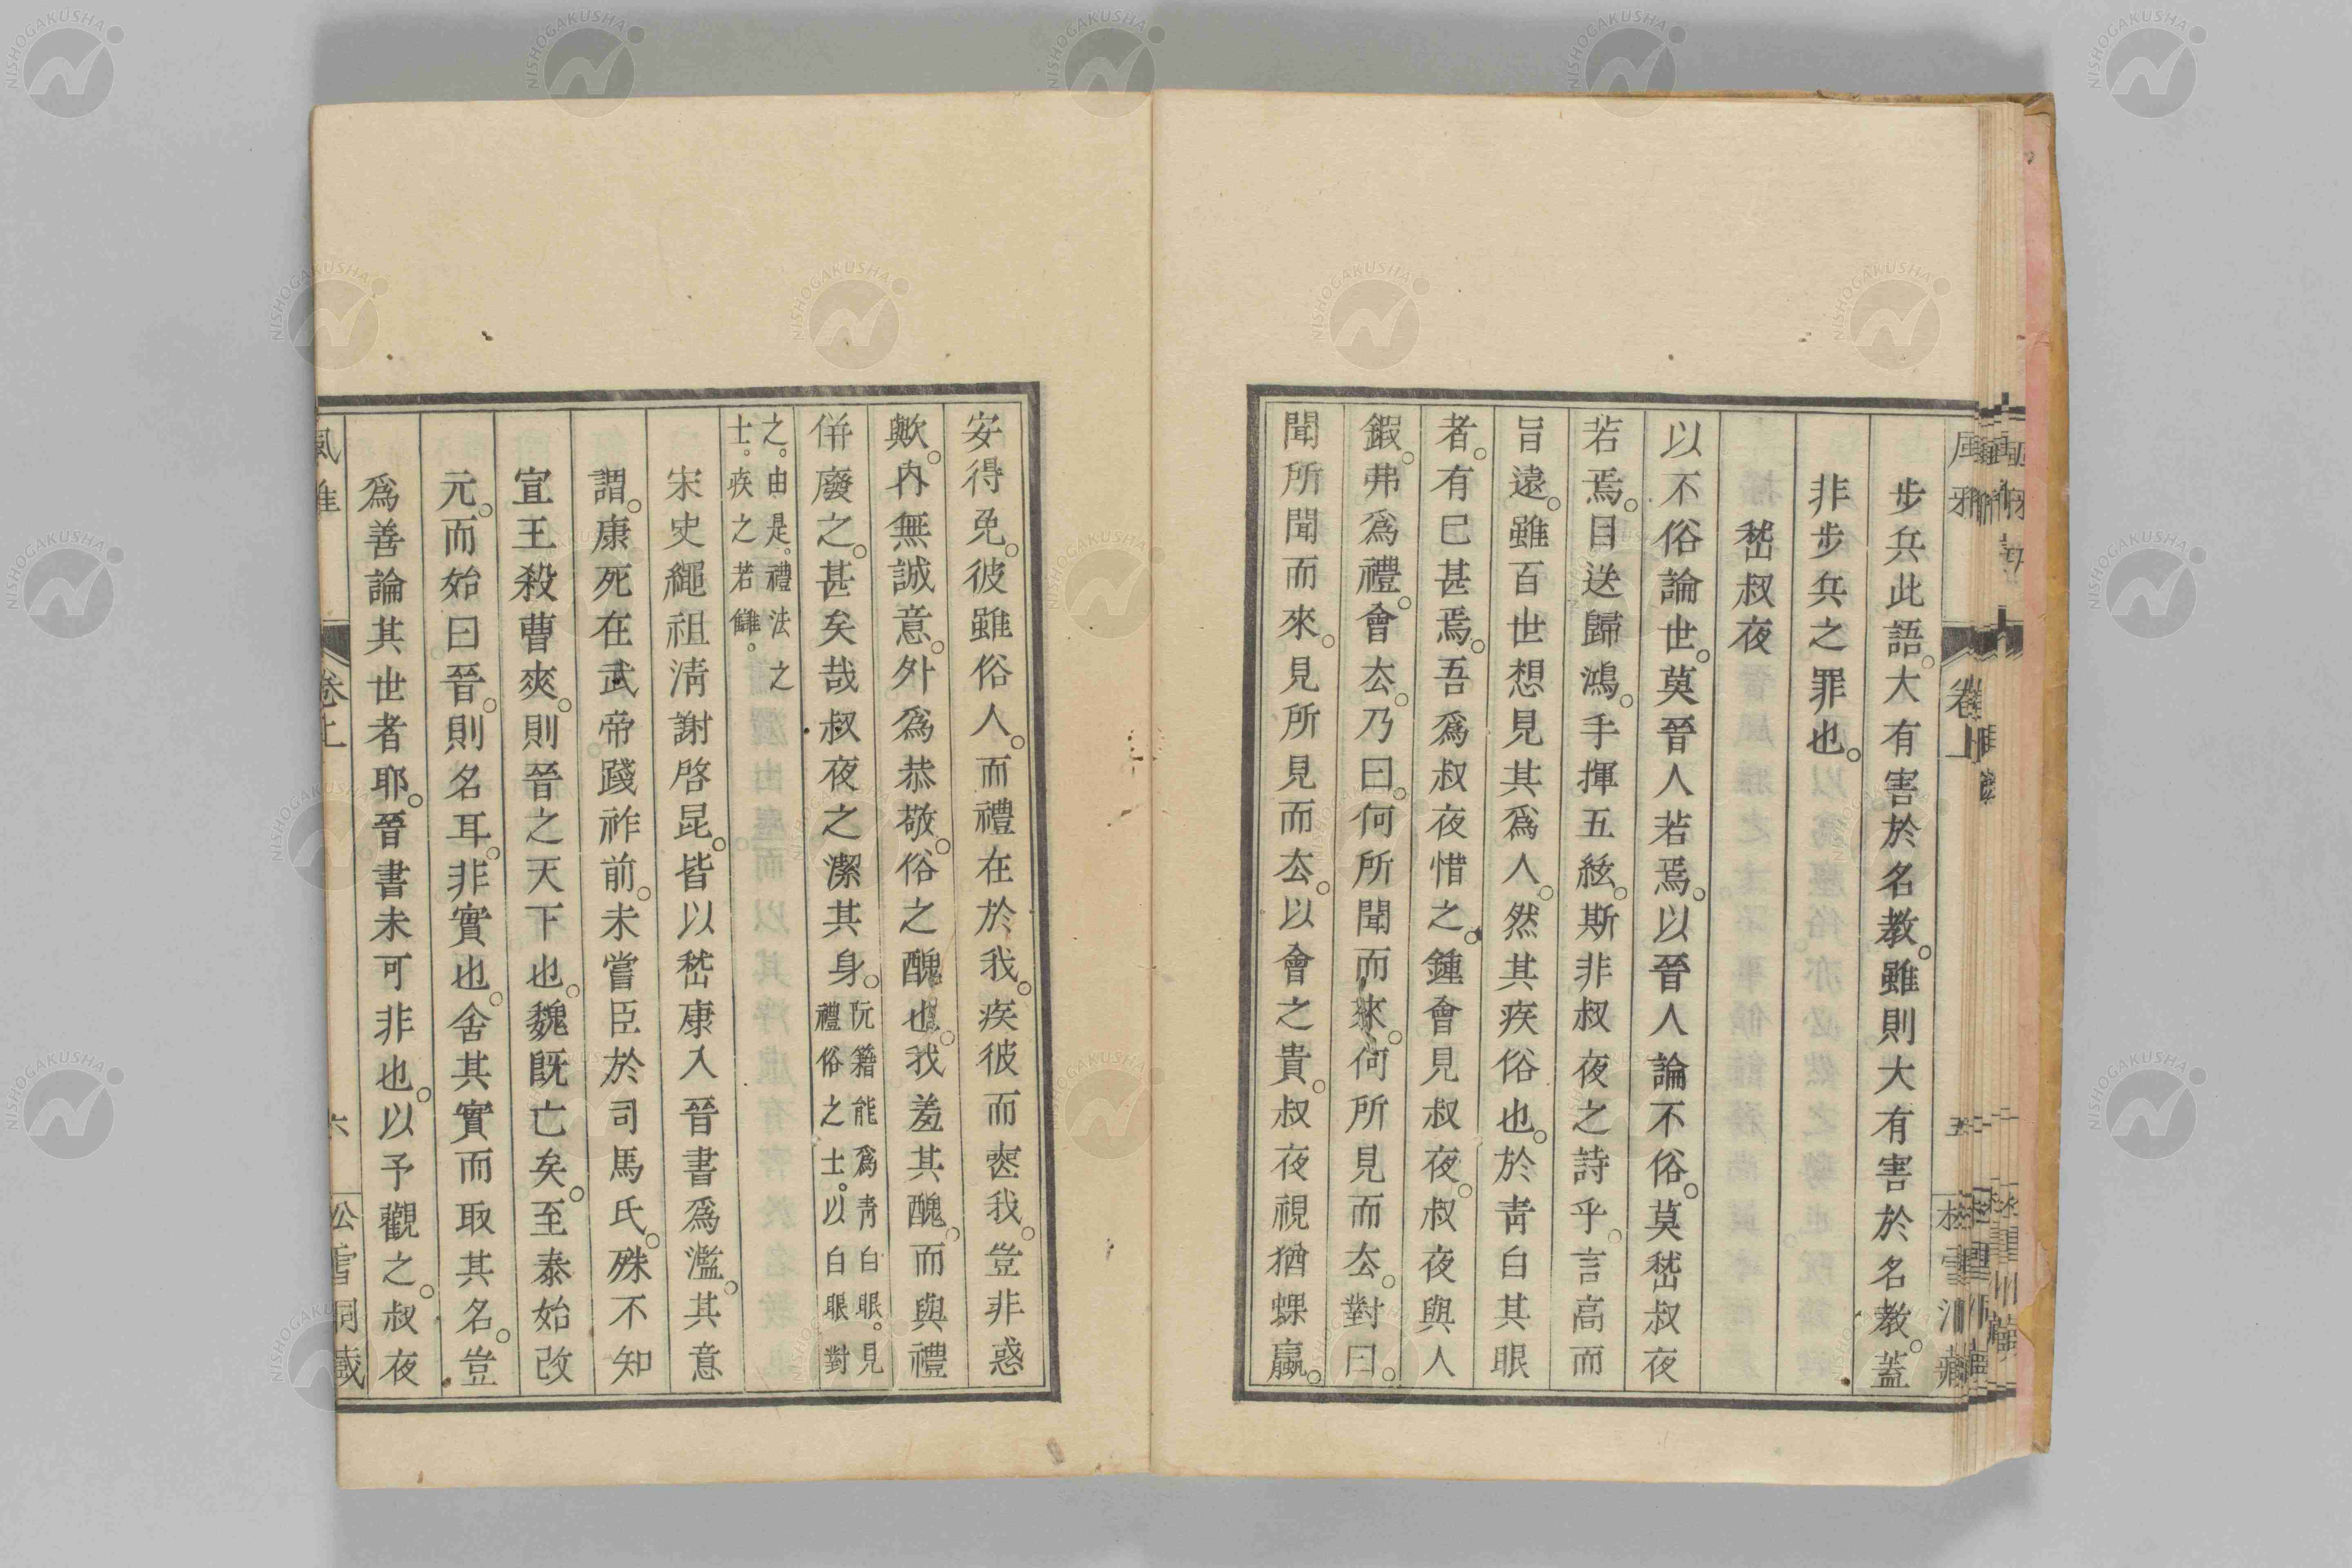 步兵此語。大有害於名教。雖則大有害於名教。蓋
非步兵之罪也。
嵇叔夜
以不俗論世。莫晉人若焉。以晉人論不俗。莫嵇叔夜
若焉。目送歸鴻。手揮五絃。斯非叔夜之詩乎。言高而
旨遠。雖百世想見其爲人。然其疾俗也。於青白其眼
者。有已甚焉。吾爲叔夜惜之。鍾會見叔夜。叔夜與人
鍜。弗爲禮。會厺。乃曰。何所聞而來。何所見而厺。對曰。
聞所聞而來。見所見而厺。以會之貴。叔夜視猶蜾蠃。
安得免。彼雖俗人。而禮在於我。疾彼而喪我。豈非惑
歟。內無誠意。外爲恭敬。俗之醜也。我羞其醜。而與禮
併廢之。甚矣哉叔夜之潔其身。阮籍能爲青白眼。見
禮俗之士。以白眼對
之。由是。禮法之
士。疾之若讎。
宋史繩祖淸謝啓昆。皆以嵇康入晉書爲濫。其意
謂。康死在武帝踐祚前。未嘗臣於司馬氏。殊不知
宣王殺曹爽。則晉之天下也。魏旣亡矣。至泰始改
元。而始曰晉。則名耳。非實也。舍其實而取其名。豈
爲善論其世者耶。晉書未可非也。以予觀之。叔夜
卷上
六